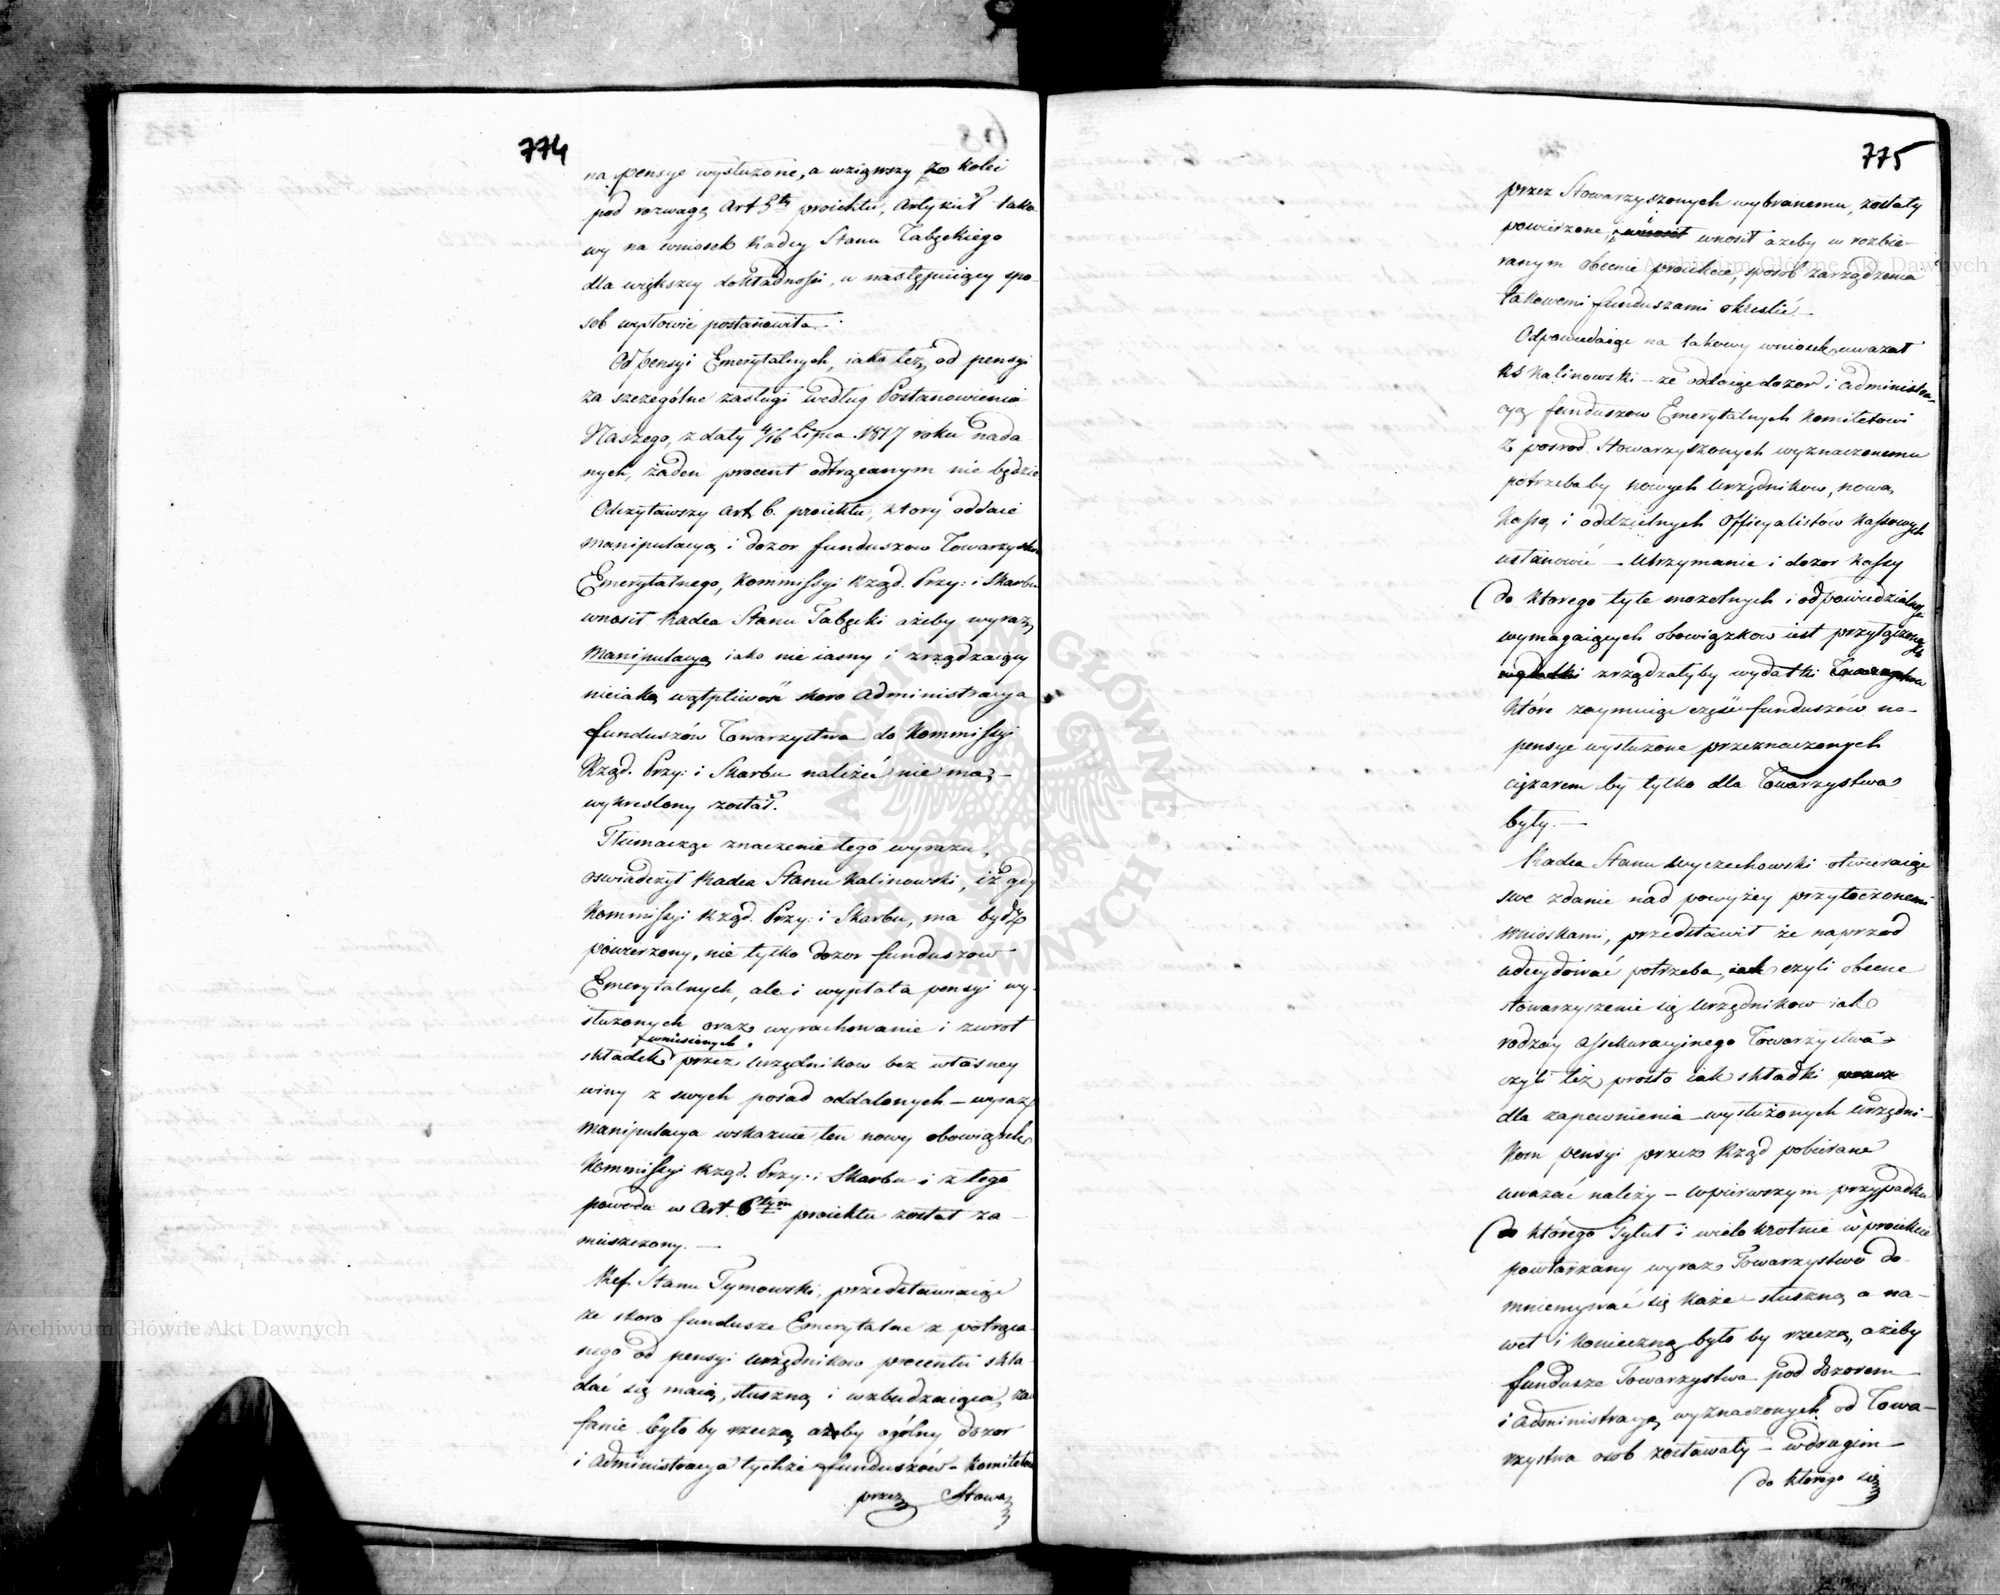 774
na pensye wysłużone, a wziąwszy po kolei
pod rozwagę Art 5ty proiektu, Artykuł tako-
wy na wniosek Radcy Stanu Tabęckiego
dla większey dokładności, w następuiący spo-
sob wysłowić postanowiła:
Od pensyi Emerytalnych, iako też od pensyi
za szczególne zasługi według Postanowienia
Naszego, z daty 4/16 Lipca 1817 roku nada
nych, żaden procent odtrącanym nie będzie
Odczytawszy Art, 6. proiektu, ktory oddaie
manipulacyą i dozor funduszow Towarzystwa
Emerytalnego, Kommissyi Rząd. Przy: i Skarbu
wnosił Radca Stanu Tabęcki ażeby wyraz,
manipulacya, iako nie iasny i zrządzaiący
nieiaką wątpliwość skoro Administracya
funduszów Towarzystwa do Kommissyi
Rząd. Przy: i Skarbu należéć nie ma, -
wykreślony został.
Tłumacząc znaczenie tego wyrazu,
oswiadczył Radca Stanu Kalinowski, iż gdy
Kommissyi Rząd. Przy: i Skarbu, ma bydź
powierzony, nie tylko dozor funduszow
Emerytalnych, ale i wypłata pensyi wy-
służonych oraz wyrachowanie i zwrot
wniesionych
składek przez Urzędnikow bez własney
winy z swych posad oddalonych - wyraz
manipulacya wskazuie ten nowy obowiązek
Kommissyi Rząd. Przy: i Skarbu i z tego
powodu w Art. 6tym proiektu został za-
mieszczony. -
Ref. Stanu Tymowski, przedstawiaiąc
że skoro fundusze Emerytalne z potrąca-
nego od pensyi urzędnikow procentu skła-
dać się maią, słuszną i wzbudzaiącą za
fanie było by rzeczą ażeby ogólny dozor
i Administracya tychże funduszów Komitetowi
przez Stowa
775
przez Stowarzyszonych wybranemu, zostały
powierzone, wnosił ażeby w rozbie-
ranym obecnie proiekcie, sposób zarządzenia
takowemi funduszami okreslić -
Odpowiadaiąc na takowy wniosek uważał
RS Kalinowski - że oddaiąc dozor i administra-
cyą funduszow Emerytalnych Komitetowi
z posrod Stowarzyszonych wyznaczonemu
potrzeba by nowych Urzędnikow, nową,
Kassę i oddzielnych Officyalistów Kassowych
ustanowić - Utrzymanie i dozor Kassy
(do ktorego tyle mozolnych i odpowiedzialnych
wymagaiących obowiązkow iest przyłączonych
zrządzałyby wydatki
które zaymuiąc część funduszów na-
pensye wysłużone przeznaczonych
ciężarem by tylko dla Towarzystwa
były. -
Radca Stanu Wyczechowski otwieraiąc
swe zdanie nad powyżey przytoczonemi
wnioskami, przedstawił że naprzod
zdecydować potrzeba, czyli obecne
stowarzyszenie się Urzędnikow iak
rodzay Assekuracyinego Towarzystwa
czyli też prosto iak składki
dla zapewnienia wysłużonych Urzędni-
kom pensyi przez Rząd pobierane
uważać należy - w pierwszym przypadku
(do którego Tytuł i wielokrotnie w proiekcie
powtarzany wyraz Towarzystwo do-
mniemywać się każe - słuszną a na-
wet i konieczną było by rzeczą, ażeby
fundusze Towarzystwa pod dozorem
i Administracyą wyznaczonych od Towa-
rzystwa osob zostawały - w drugim -
(do ktorego się
Archiwum Główne Akt Dawnych
Archiwum Główne Akt Dawnych
ARCHIWUM GŁÓWNE AKT DAWNYCH